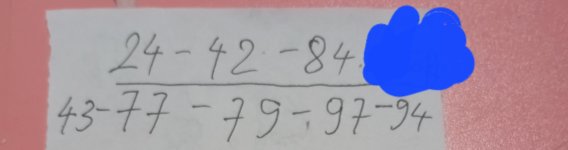 24 - 42 - 84
43 - 77 - 79 - 97 - 94